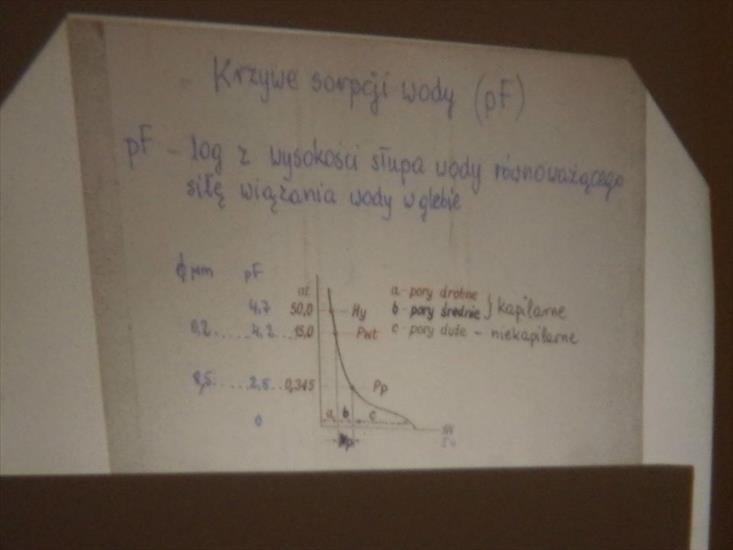 Krzywe sorpcji wody (pF)
pF – log z wysokości słupa wody równoważącego
siłę wiązania wody w glebie
ϕ μm pF at
4,7 50,0 Hy
0,2 4,2 15,0 Pwt
8,5 2,5 0,345 Pp
0
a - pory drobne
b - pory średnie } kapilarne
c - pory duże - niekapilarne
a b c